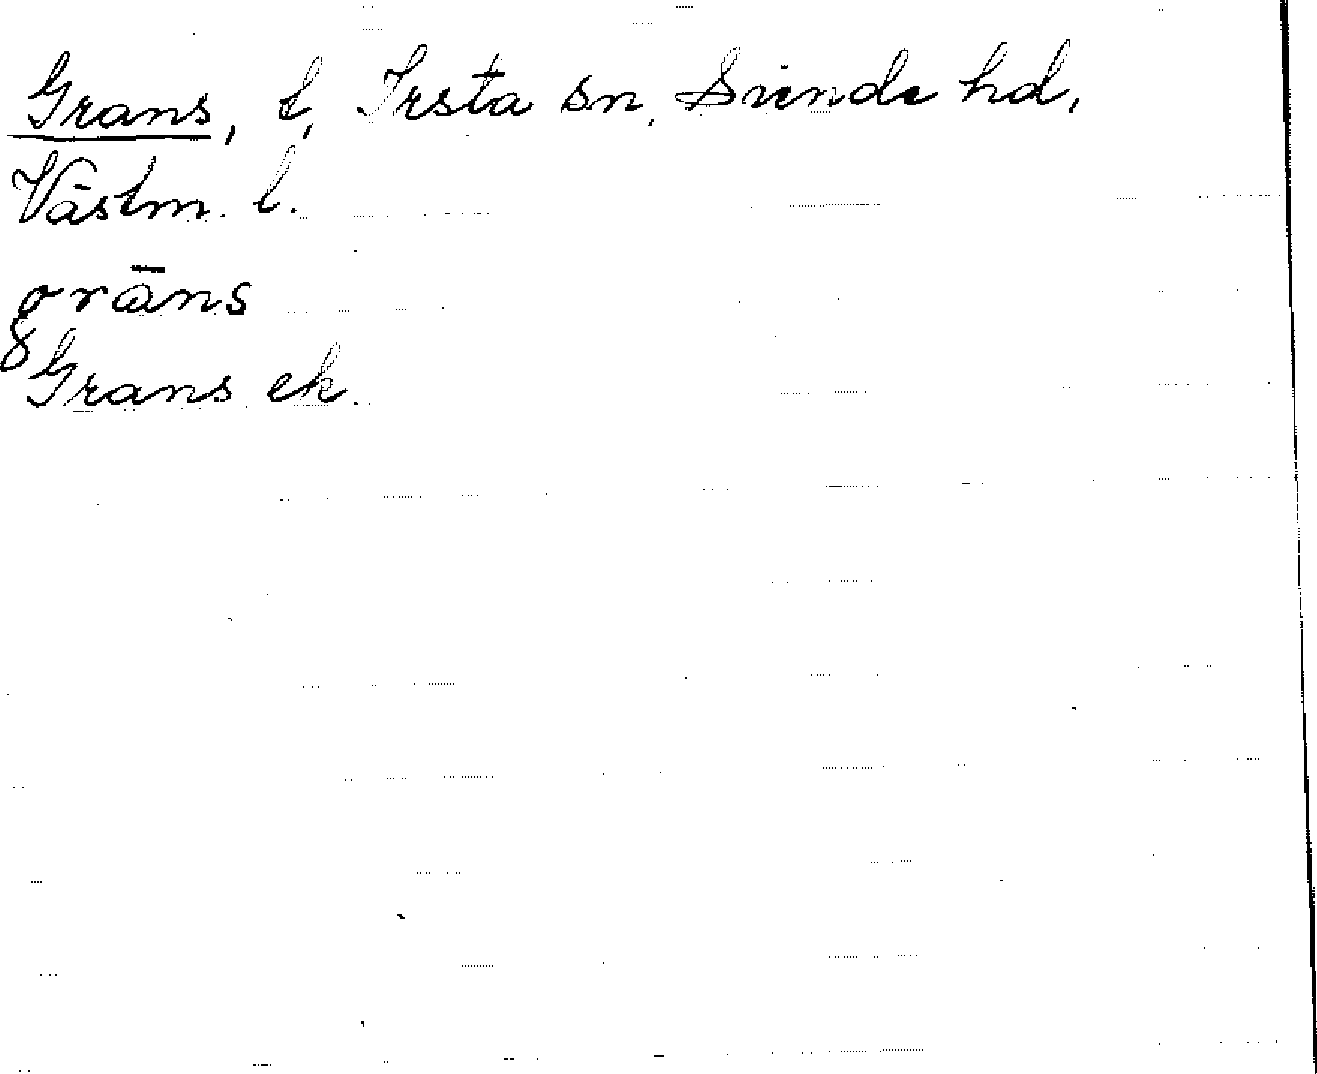 Grans, t, Irsta sn, Siende hd,
Västm. l.
grāns
Grans ek.